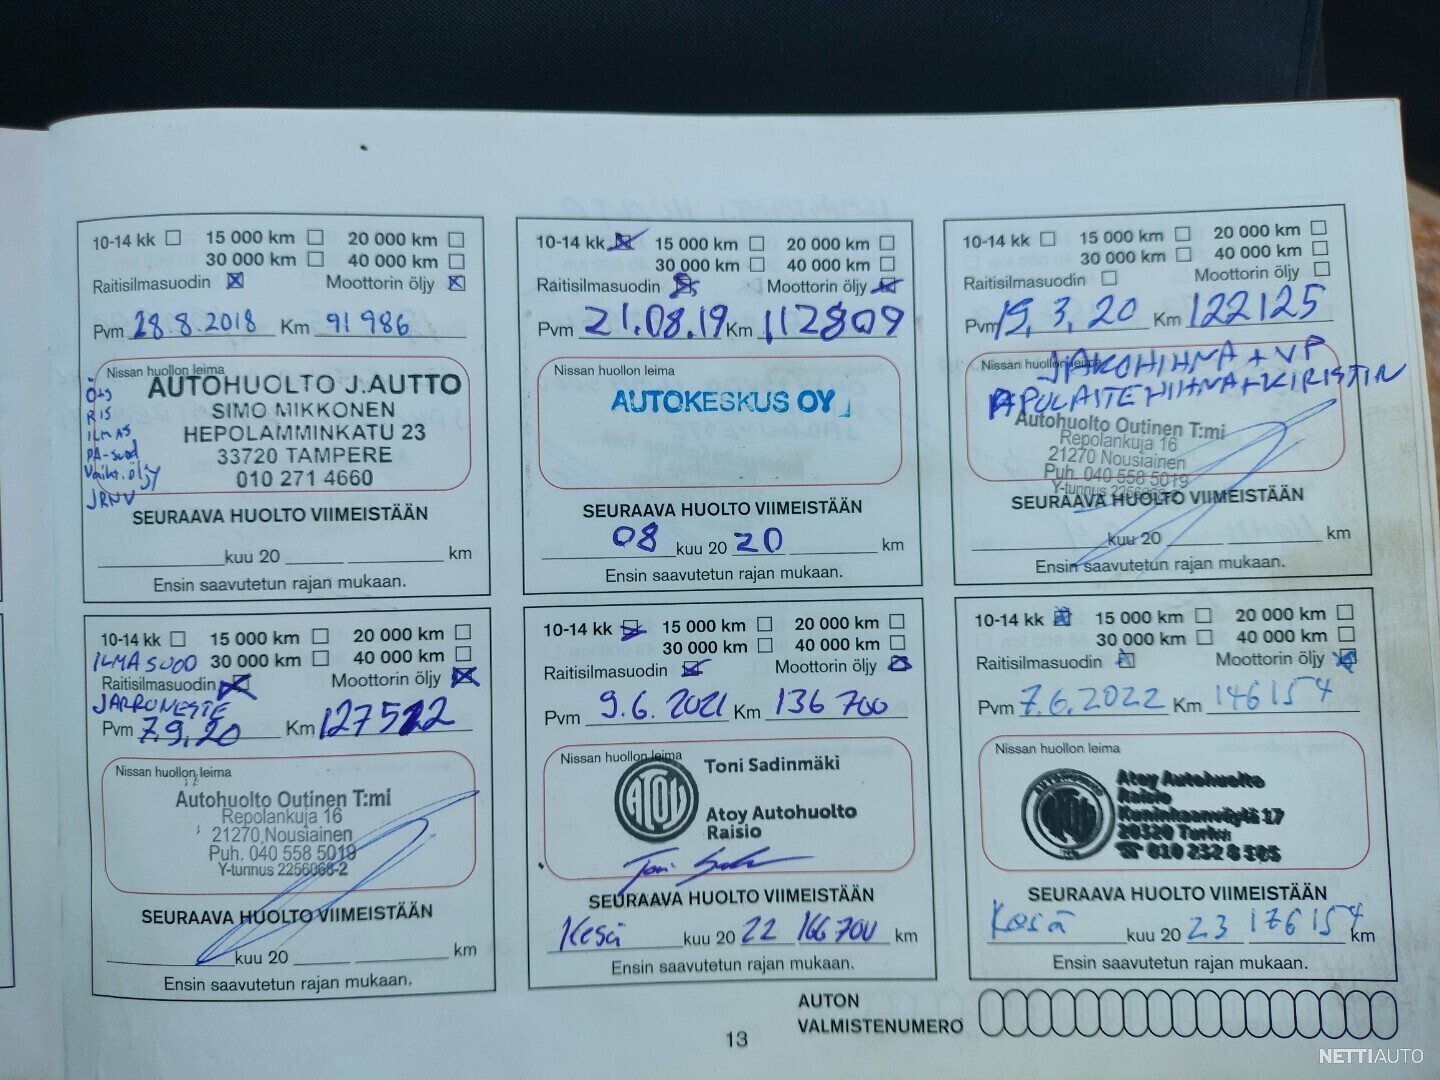 10-14 kk 15 000 km 20 000 km
30 000 km 40 000 km
Raitisilmasuodin Moottorin öljy
Pvm 28.8.2018 Km 91 986
Nissan huollon leima
AUTOHUOLTO J.AUTTO
SIMO MIKKONEN
HEPOLAMMINKATU 23
33720 TAMPERE
010 271 4660
Öljy
RIS
ILMAS
PA-suod
Vaihs.öljy
JRNV
SEURAAVA HUOLTO VIIMEISTÄÄN
kuu 20 km
Ensin saavutetun rajan mukaan.
10-14 kk 15 000 km 20 000 km
30 000 km 40 000 km
Raitisilmasuodin Moottorin öljy
Pvm 21.08.19 Km 112809
Nissan huollon leima
AUTOKESKUS OY
SEURAAVA HUOLTO VIIMEISTÄÄN
08 kuu 20 20 km
Ensin saavutetun rajan mukaan.
10-14 kk 15 000 km 20 000 km
30 000 km 40 000 km
Raitisilmasuodin Moottorin öljy
Pvm 19.3.20 Km 122125
Nissan huollon leima
JAKOHIHNA + VP
APULAITEHIHNA+KIRISTIN
Autohuolto Outinen T:mi
Repolankuja 16
21270 Nousiainen
Puh. 040 558 5019
Y-tunnus 2256068-2
SEURAAVA HUOLTO VIIMEISTÄÄN
kuu 20 km
Ensin saavutetun rajan mukaan.
10-14 kk 15 000 km 20 000 km
ILMASUOD 30 000 km 40 000 km
Raitisilmasuodin Moottorin öljy
JARRUNESTE
Pvm 7.9.20 Km 127522
Nissan huollon leima
Autohuolto Outinen T:mi
Repolankuja 16
21270 Nousiainen
Puh. 040 558 5019
Y-tunnus 2256068-2
SEURAAVA HUOLTO VIIMEISTÄÄN
kuu 20 km
Ensin saavutetun rajan mukaan.
10-14 kk 15 000 km 20 000 km
30 000 km 40 000 km
Raitisilmasuodin Moottorin öljy
Pvm 9.6.2021 Km 136 700
Nissan huollon leima
ATOY
Toni Sadinmäki
Atoy Autohuolto
Raisio
SEURAAVA HUOLTO VIIMEISTÄÄN
Kesä kuu 20 22 166700 km
Ensin saavutetun rajan mukaan.
10-14 kk 15 000 km 20 000 km
30 000 km 40 000 km
Raitisilmasuodin Moottorin öljy
Pvm 7.6.2022 Km 146154
Nissan huollon leima
ATOY
Atoy Autohuolto
Raisio
Kuninkaanväylä 17
20320 Turku
☎ 010 232 8 505
SEURAAVA HUOLTO VIIMEISTÄÄN
Kesä kuu 20 23 176154 km
Ensin saavutetun rajan mukaan.
AUTON
VALMISTENUMERO
13
NETTIAUTO